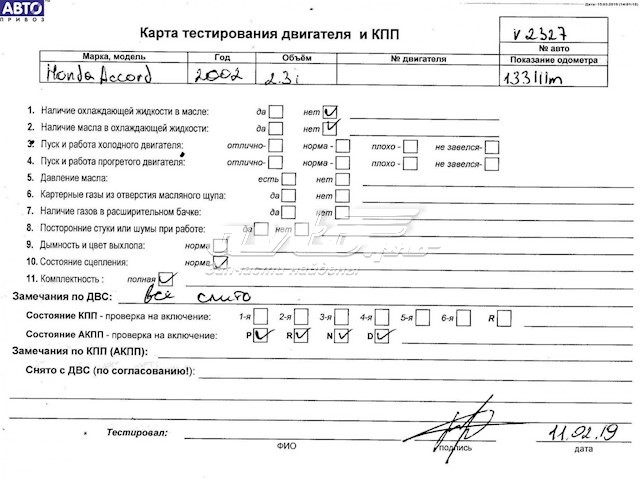 АВТО
ПРИВОЗ
Карта тестирования двигателя и КПП
v 2327
№ авто
Марка, модель Год Объём № двигателя Показание одометра
Honda Accord 2002 2.3i 133
1. Наличие охлаждающей жидкости в масле: да нет
2. Наличие масла в охлаждающей жидкости: да нет
3. Пуск и работа холодного двигателя: отлично- норма - плохо - не завелся-
4. Пуск и работа прогретого двигателя: отлично- норма - плохо - не завелся-
5. Давление масла: есть нет
6. Картерные газы из отверстия масляного щупа: да нет
7. Наличие газов в расширительном бачке: да нет
8. Посторонние стуки или шумы при работе: да нет
9. Дымность и цвет выхлопа: норма
10. Состояние сцепления: норма
11. Комплектность : полная
Замечания по ДВС: все слито
Состояние КПП - проверка на включение: 1-я 2-я 3-я 4-я 5-я 6-я R
Состояние АКПП - проверка на включение: P R N D
Замечания по КПП (АКПП):
Снято с ДВС (по согласованию!):
Тестировал: 11.02.19
ФИО подпись дата